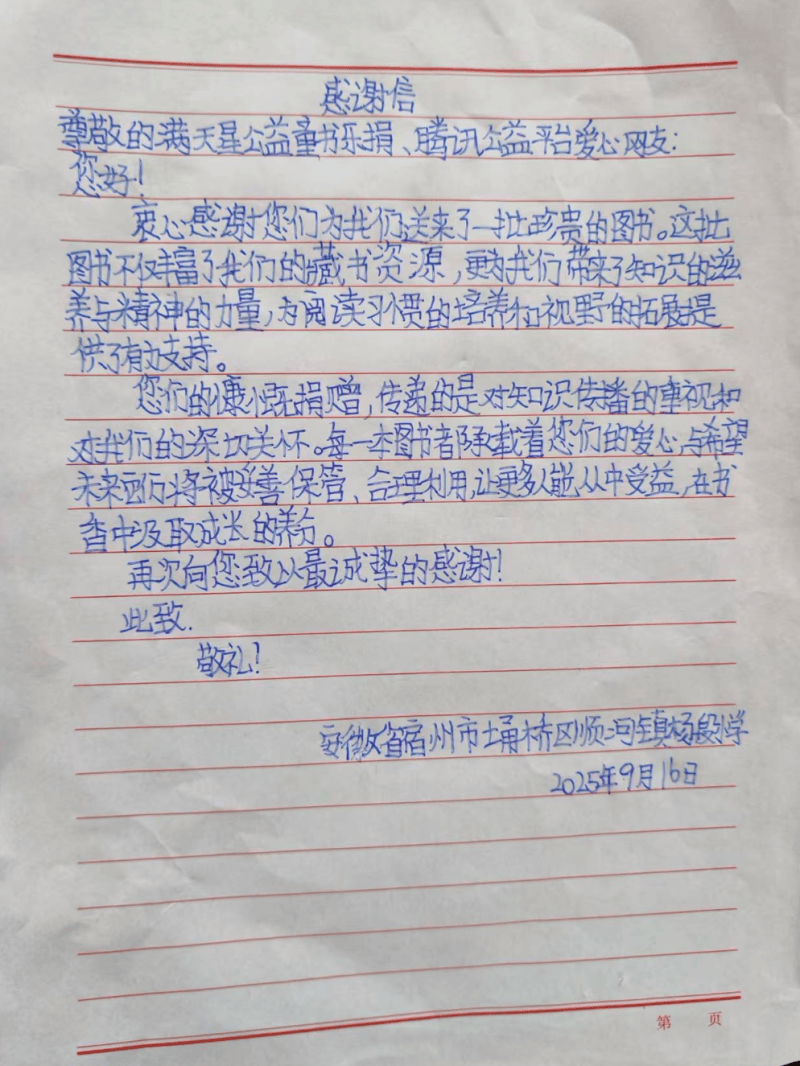 感谢信
尊敬的满天星公益童书乐捐、腾讯公益平台爱心网友：
您好！
衷心感谢您们为我们送来了一批珍贵的图书。这批
图书不仅丰富了我们的藏书资源，更为我们带来了知识的滋
养与精神的力量，为阅读习惯的培养和视野的拓展提
供了有力支持。
您们的慷慨捐赠，传递的是对知识传播的重视和
对我们的深切关怀。每一本图书都承载着您们的爱心与希望
未来它们将被妥善保管、合理利用，让更多人能从中受益，在书
香中汲取成长的养分。
再次向您致以最诚挚的感谢！
此致.
敬礼！
安徽省宿州市埇桥区顺河镇杨段小学
2025年9月16日
第 页